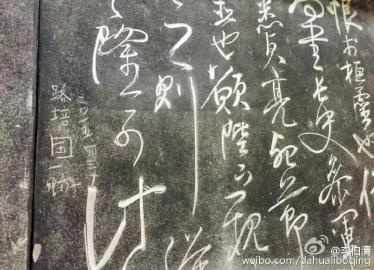 恨於桓靈也侍
尚書長史參軍
悉貞亮死節
也願陛下親
之則漢
隆可計
路培国
@李伯清
weibo.com/dahualiboqing